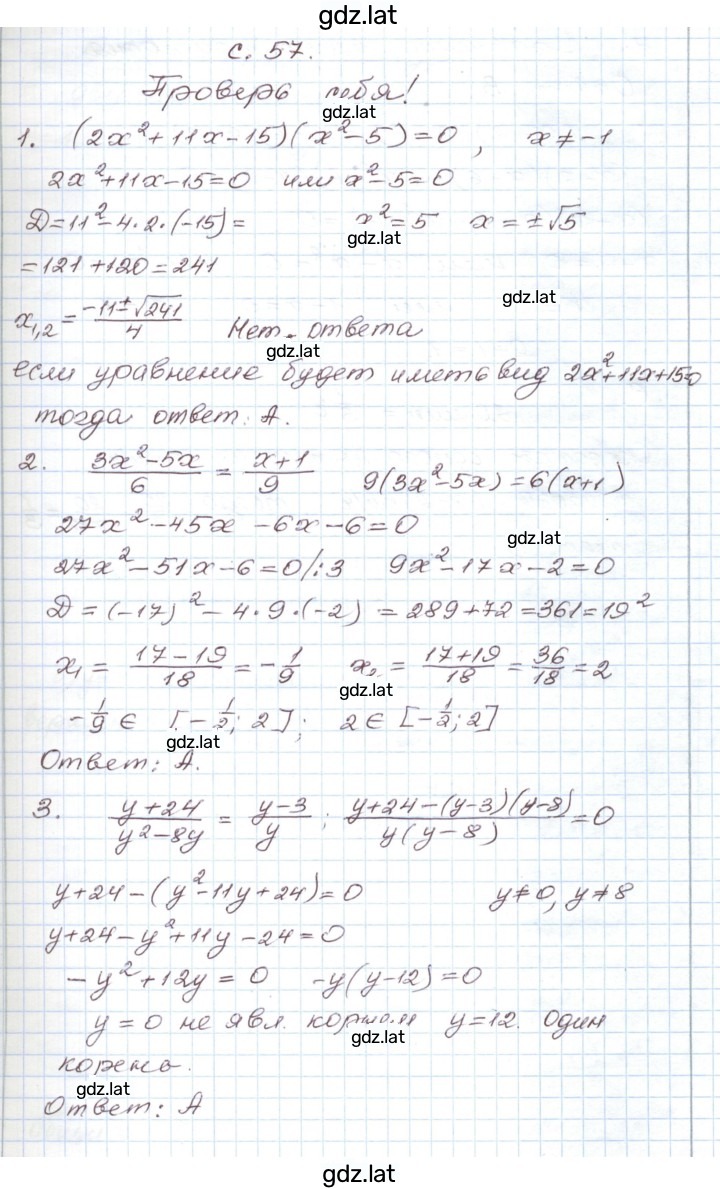 gdz.lat
с. 57.
Проверь себя!
gdz.lat
1. (2x²+11x-15)(x²-5)=0, x≠-1
2x²+11x-15=0 или x²-5=0
D=11²-4·2·(-15)= x²=5 x=±√5
gdz.lat
=121+120=241
gdz.lat
x₁,₂ = (-11±√241)/4 Нет ответа
gdz.lat
если уравнение будет иметь вид 2x²+11x+15=0
тогда ответ: А.
2. (3x²-5x)/6 = (x+1)/9 9(3x²-5x)=6(x+1)
27x²-45x-6x-6=0
gdz.lat
27x²-51x-6=0/:3 9x²-17x-2=0
D=(-17)²-4·9·(-2)=289+72=361=19²
x₁ = (17-19)/18 = -1/9 x₂ = (17+19)/18 = 36/18 = 2
gdz.lat
-1/9 ∈ [-1/2; 2]; 2 ∈ [-1/2; 2]
gdz.lat
Ответ: А.
3. (y+24)/(y²-8y) = (y-3)/y ; (y+24-(y-3)(y-8))/(y(y-8)) = 0
y+24-(y²-11y+24)=0 y≠0, y≠8
y+24-y²+11y-24=0
-y²+12y=0 -y(y-12)=0
y=0 не явл. корнем y=12. Один
gdz.lat
корень.
gdz.lat
Ответ: А
gdz.lat